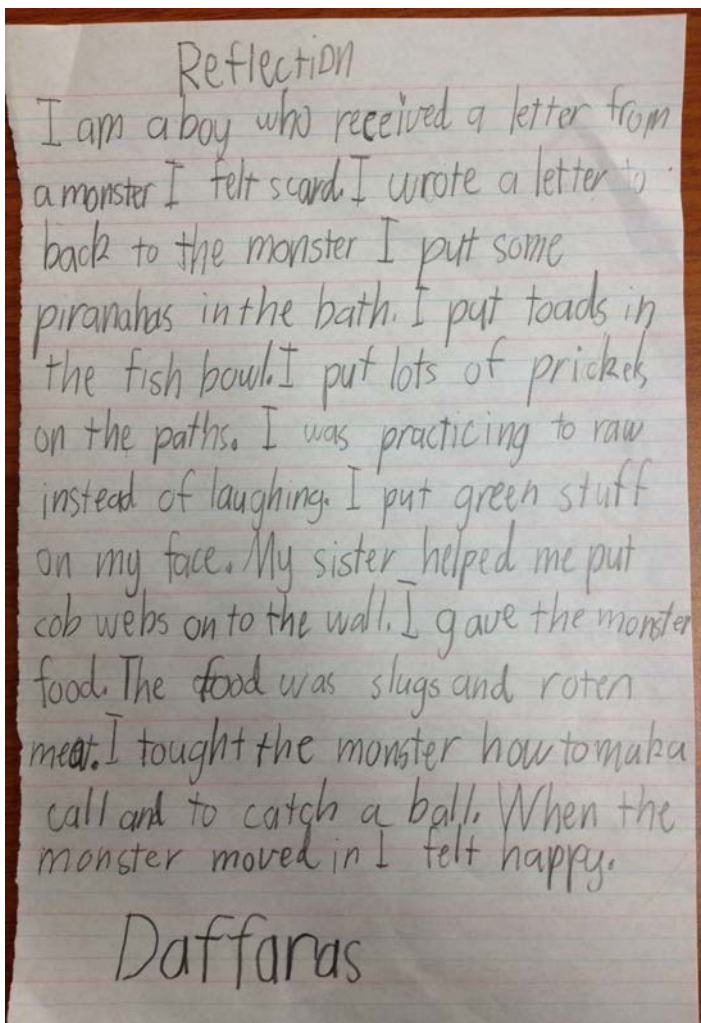 Reflection
I am a boy who received a letter from
a monster I felt scard. I wrote a letter to
back to the monster I put some
piranahas in the bath. I put toads in
the fish bowl. I put lots of prickels
on the paths. I was practicing to raw
instead of laughing. I put green stuff
on my face. My sister helped me put
cob webs on to the wall. I gave the monster
food. The food was slugs and roten
meat. I tought the monster how to mak a
call and to catch a ball. When the
monster moved in I felt happy.
Daffaras